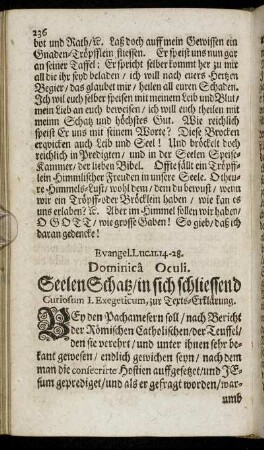 236
bot und Rath/ꝛc. Laß doch auff mein Gewissen ein
Gnaden/Tröpfflein fliessen. Er speist uns nun gar
an seiner Taffel: Er spricht selber kommt her zu mir
all die ihr seyd beladen / ich will nach euers Hertzen
Begier / das glaubet mir / heilen all euren Schaden.
Ich wil euch selber speisen mit meinem Leib und Blut/
mein Lieb an euch beweisen / ich will euch theilen mit
meinn Schatz und höchstes Gut. Wie reichlich
speist Er uns mit seinem Worte? Diese Brocken
erqvicken auch Leib und Seel! Und bröckelt doch
reichlich in Predigten / und in der Seelen Speise-
Kammer / der lieben Bibel. Offte fällt ein Tröpff-
lein Himmlischer Freuden in unsere Seele. O theu-
re-Himmels-Lust / wohl dem / dem du bewust / wenn
wir ein Tröpff-oder Bröcklein haben / wie kan es
uns erlaben? ꝛc. Aber im Himmel sollen wir haben/
O GOTT / wie grosse Gaben! So gieb / daß ich
daran gedencke!
Evangel. Luc. 11. 14-28.
Dominicâ Oculi.
Seelen Schatz / in sich schliessend
Curiosum I. Exegeticum, zur Texts-Erklärung.
BEy den Pachamesern soll / nach Bericht
der Römischen Catholischen / der Teuffel/
den sie verehrt / und unter ihnen sehr be-
kant gewesen / endlich gewichen seyn / nach dem
man die consecrirte Hostien auffgesetzet / und JE-
sum geprediget / und als er gefragt worden / war-
umb